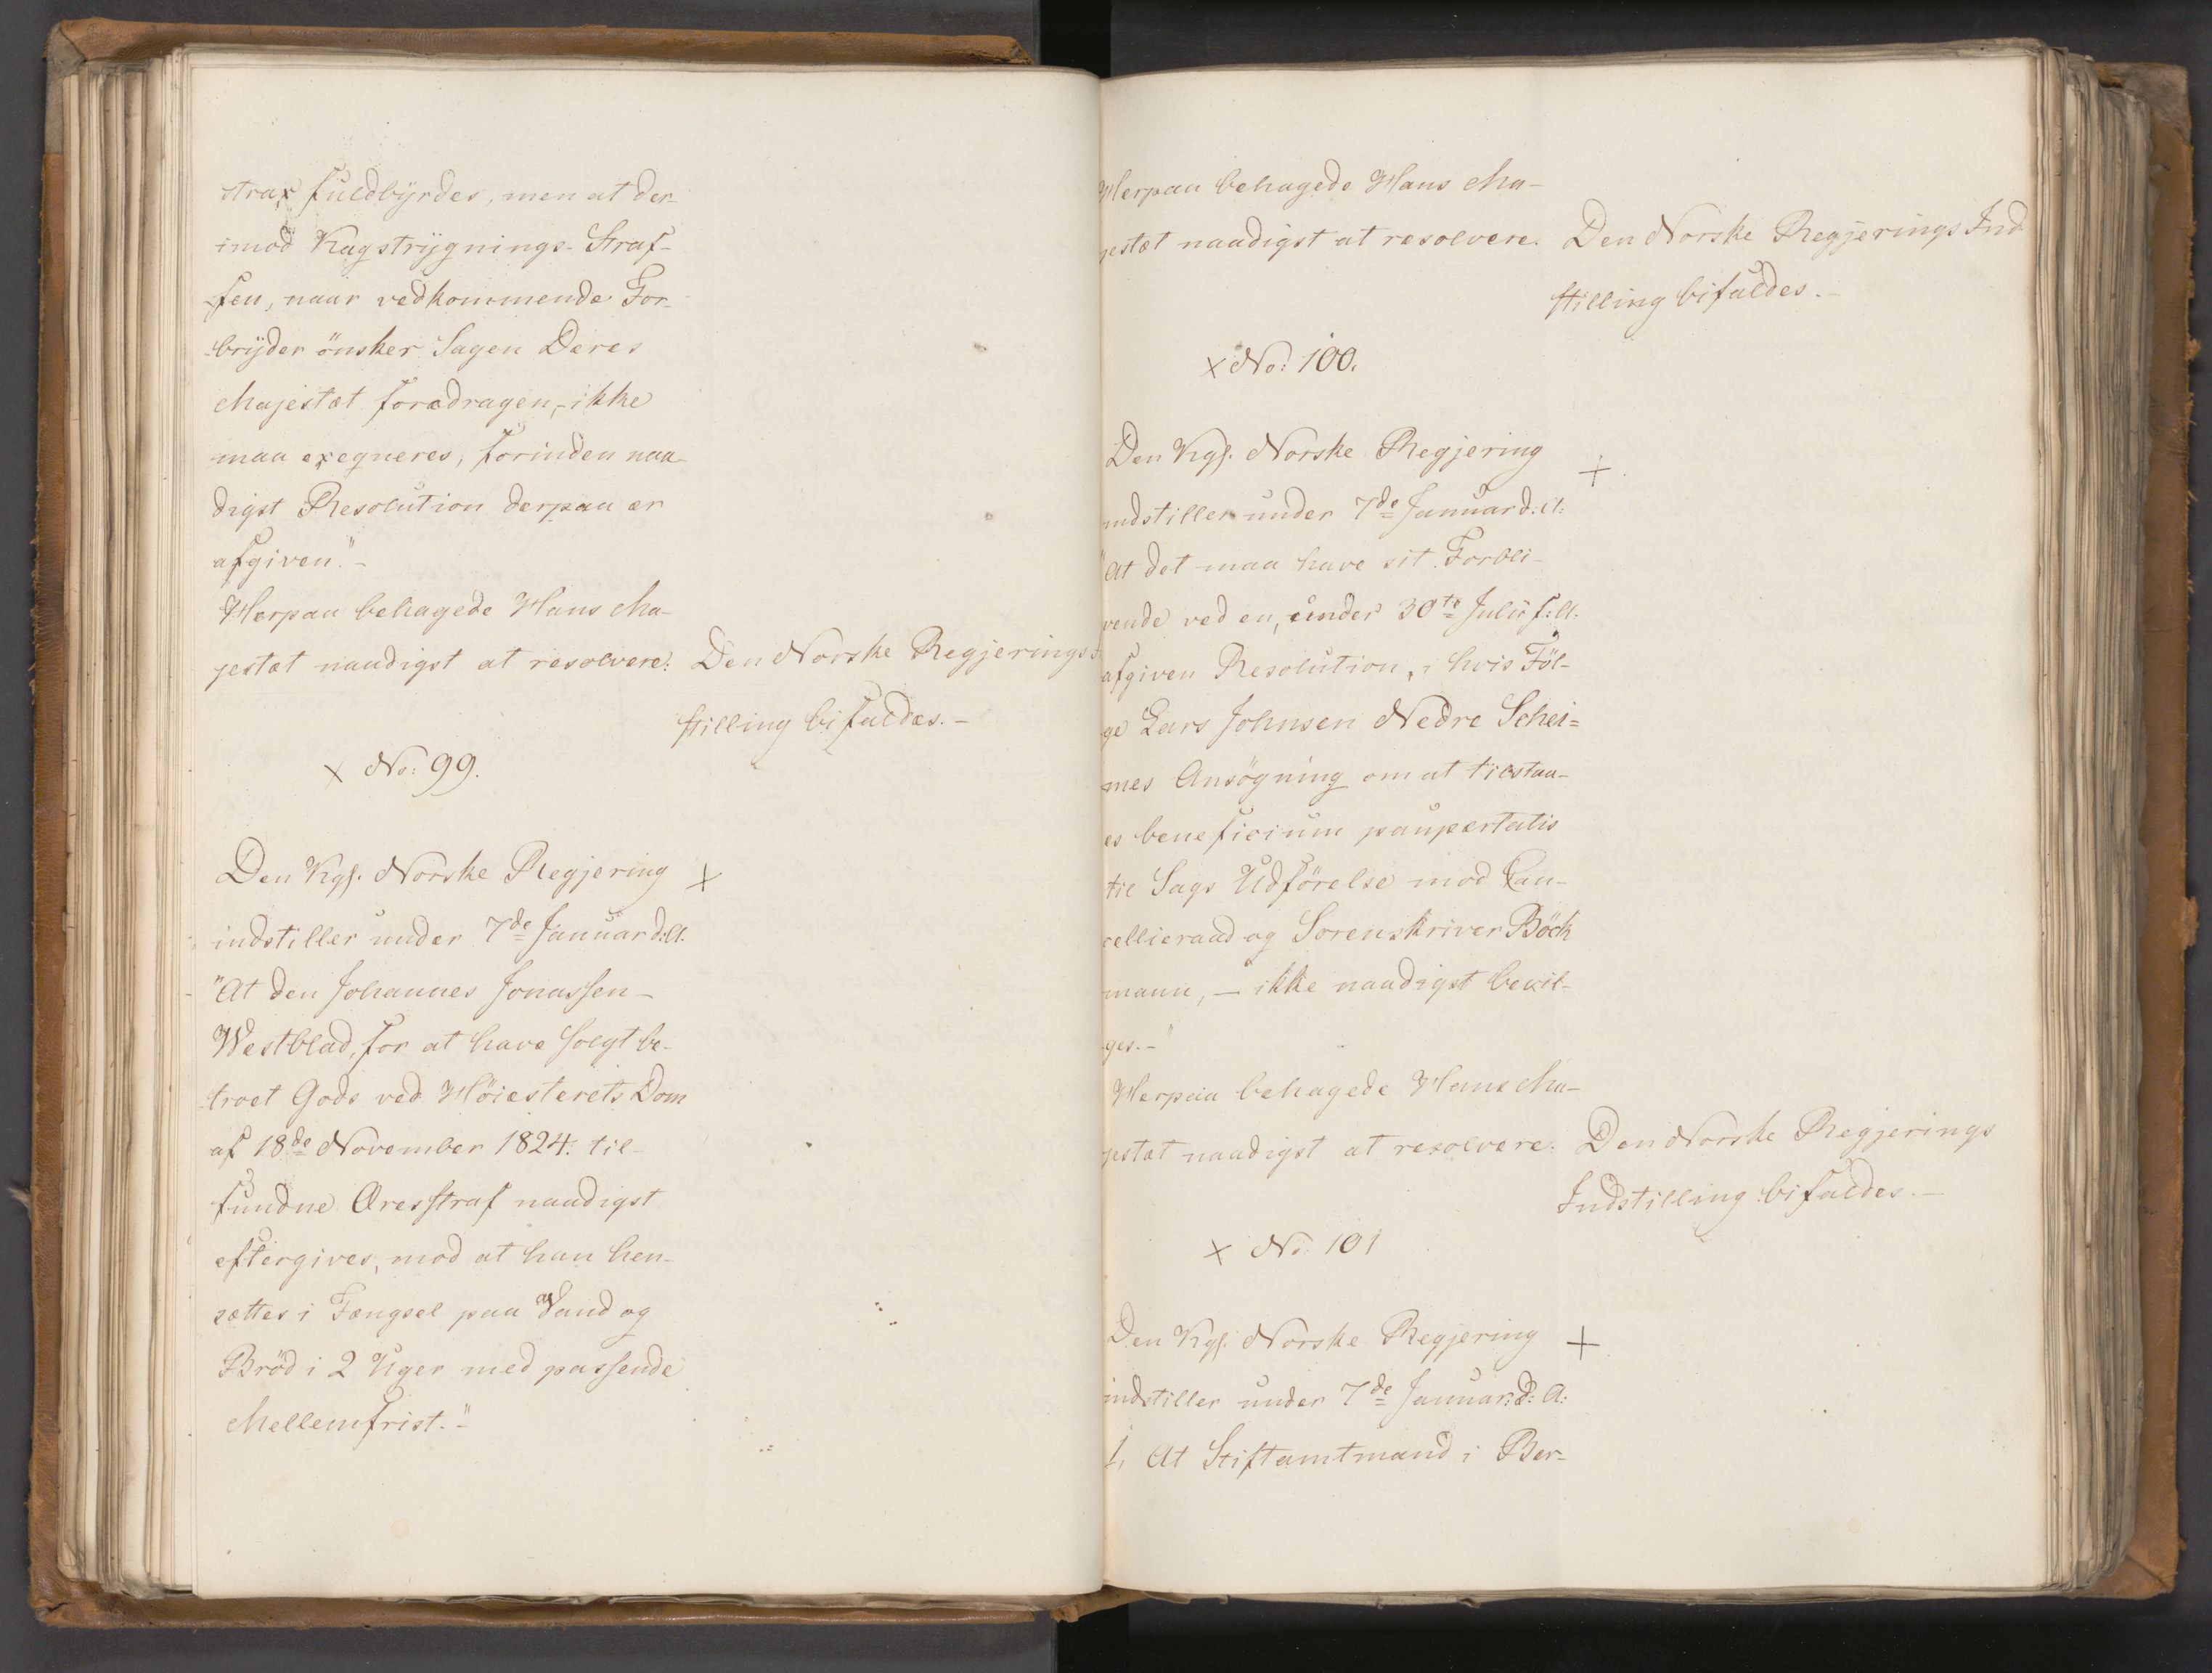 strax fuldbyrdes, men at der-
imod Kagstrygnings-Straf-
fen, naar vedkommende For-
bryder önsker Sagen Deres
Majestæt foredragen, - ikke
maa exeqveres, förinden naa-
digst Resolution derpaa er
afgiven." -
Herpaa behagede Hans Ma-
jestæt naadigst at resolvere: Den Norske Regjerings
stilling bifaldes. -
× No: 99.
Den Kgl. Norske Regjering ×
indstiller under 7de Januar d: A.
"At den Johannes Jonassen
Westblad, for at have solgt be-
troet Gods ved Höiesterets Dom
af 18de November 1824. til-
fundne Æresstraf naadigst
eftergives, mod at han hen-
sættes i Fængsel paa Vand og
Bröd i 2 Uger med passende
Mellemfrist." -
Herpaa behagede Hans Ma-
jestæt naadigst at resolvere. Den Norske Regjerings Ind-
stilling bifaldes. -
× No: 100.
Den Kgl. Norske Regjering +
indstiller under 7de Januar d: A:
"At det maa have sit Forbli-
vende ved en, under 30te Julii f: A.
afgiven Resolution, i hvis Föl-
ge Lars Johnsen Nedre Schei=
mes Ansögning om at tilstaa-
es beneficium paupertatis
til Sags Udförelse mod Can-
cellieraad og Sorenskriver Böck
mann, - ikke naadigst bevil-
ges. -"
Herpaa behagede Hans Ma-
jestæt naadigst at resolvere: Den Norske Regjerings
Indstilling bifaldes. -
× No: 101
Den Kgl. Norske Regjering +
indstiller under 7de Januar: d: A:
1, At Stiftamtmand i Ber-